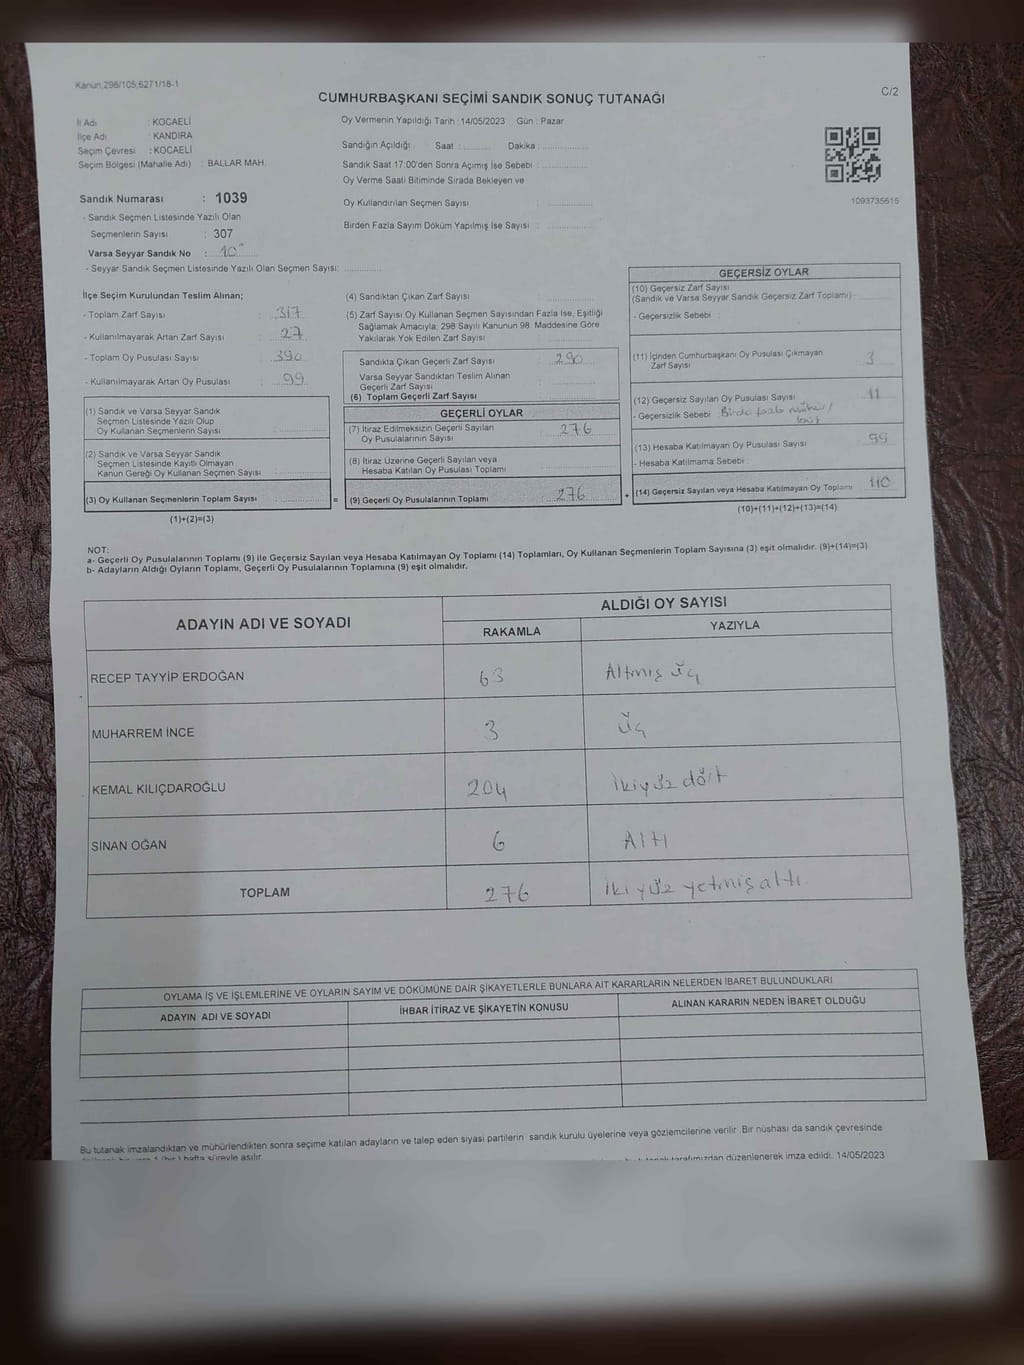 Kanun,298/105;6271/18-1
CUMHURBAŞKANI SEÇİMİ SANDIK SONUÇ TUTANAĞI
C/2
İl Adı : KOCAELİ
İlçe Adı : KANDIRA
Seçim Çevresi : KOCAELİ
Seçim Bölgesi (Mahalle Adı) : BALLAR MAH.
Oy Vermenin Yapıldığı Tarih :14/05/2023 Gün : Pazar
Sandığın Açıldığı Saat : Dakika :
Sandık Saat 17:00'den Sonra Açımış İse Sebebi :
Oy Verme Saati Bitiminde Sırada Bekleyen ve
Oy Kullandırılan Seçmen Sayısı :
Birden Fazla Sayım Döküm Yapılmış İse Sayısı :
1093735615
Sandık Numarası : 1039
- Sandık Seçmen Listesinde Yazılı Olan
Seçmenlerin Sayısı : 307
Varsa Seyyar Sandık No :
- Seyyar Sandık Seçmen Listesinde Yazılı Olan Seçmen Sayısı:
İlçe Seçim Kurulundan Teslim Alınan;
- Toplam Zarf Sayısı : 317
- Kullanılmayarak Artan Zarf Sayısı : 27
- Toplam Oy Pusulası Sayısı : 390
- Kullanılmayarak Artan Oy Pusulası : 99
(1) Sandık ve Varsa Seyyar Sandık
Seçmen Listesinde Yazılı Olup
Oy Kullanan Seçmenlerin Sayısı :
(2) Sandık ve Varsa Seyyar Sandık
Seçmen Listesinde Kayıtlı Olmayan
Kanun Gereği Oy Kullanan Seçmen Sayısı :
(3) Oy Kullanan Seçmenlerin Toplam Sayısı : =
(1)+(2)=(3)
(4) Sandıktan Çıkan Zarf Sayısı :
(5) Zarf Sayısı Oy Kullanan Seçmen Sayısından Fazla İse, Eşitliği
Sağlamak Amacıyla, 298 Sayılı Kanunun 98. Maddesine Göre
Yakılarak Yok Edilen Zarf Sayısı :
Sandıkta Çıkan Geçerli Zarf Sayısı : 290
Varsa Seyyar Sandıktan Teslim Alınan
Geçerli Zarf Sayısı :
(6) Toplam Geçerli Zarf Sayısı :
GEÇERLİ OYLAR
(7) İtiraz Edilmeksizin Geçerli Sayılan
Oy Pusulalarının Sayısı : 276
(8) İtiraz Üzerine Geçerli Sayılan veya
Hesaba Katılan Oy Pusulası Toplamı :
(9) Geçerli Oy Pusulalarının Toplamı : 276 +
GEÇERSİZ OYLAR
(10) Geçersiz Zarf Sayısı
(Sandık ve Varsa Seyyar Sandık Geçersiz Zarf Toplamı) :
- Geçersizlik Sebebi :
(11) İçinden Cumhurbaşkanı Oy Pusulası Çıkmayan
Zarf Sayısı : 3
(12) Geçersiz Sayılan Oy Pusulası Sayısı : 11
- Geçersizlik Sebebi :
(13) Hesaba Katılmayan Oy Pusulası Sayısı : 99
- Hesaba Katılmama Sebebi :
(14) Geçersiz Sayılan veya Hesaba Katılmayan Oy Toplamı : 110
(10)+(11)+(12)+(13)=(14)
NOT:
a- Geçerli Oy Pusulalarının Toplamı (9) ile Geçersiz Sayılan veya Hesaba Katılmayan Oy Toplamı (14) Toplamları, Oy Kullanan Seçmenlerin Toplam Sayısına (3) eşit olmalıdır. (9)+(14)=(3)
b- Adayların Aldığı Oyların Toplamı, Geçerli Oy Pusulalarının Toplamına (9) eşit olmalıdır.
ADAYIN ADI VE SOYADI
ALDIĞI OY SAYISI
RAKAMLA YAZIYLA
RECEP TAYYİP ERDOĞAN 63 Altmış üç
MUHARREM İNCE 3 üç
KEMAL KILIÇDAROĞLU 204 ikiyüz dört
SİNAN OĞAN 6 Altı
TOPLAM 276 iki yüz yetmiş altı
OYLAMA İŞ VE İŞLEMLERİNE VE OYLARIN SAYIM VE DÖKÜMÜNE DAİR ŞİKAYETLERLE BUNLARA AİT KARARLARIN NELERDEN İBARET BULUNDUKLARI
ADAYIN ADI VE SOYADI İHBAR İTİRAZ VE ŞİKAYETİN KONUSU ALINAN KARARIN NEDEN İBARET OLDUĞU
Bu tutanak imzalandıktan ve mühürlendikten sonra seçime katılan adayların ve talep eden siyasi partilerin sandık kurulu üyelerine veya gözlemcilerine verilir. Bir nüshası da sandık çevresinde
hafta süreyle asılır. düzenlenerek imza edildi. 14/05/2023